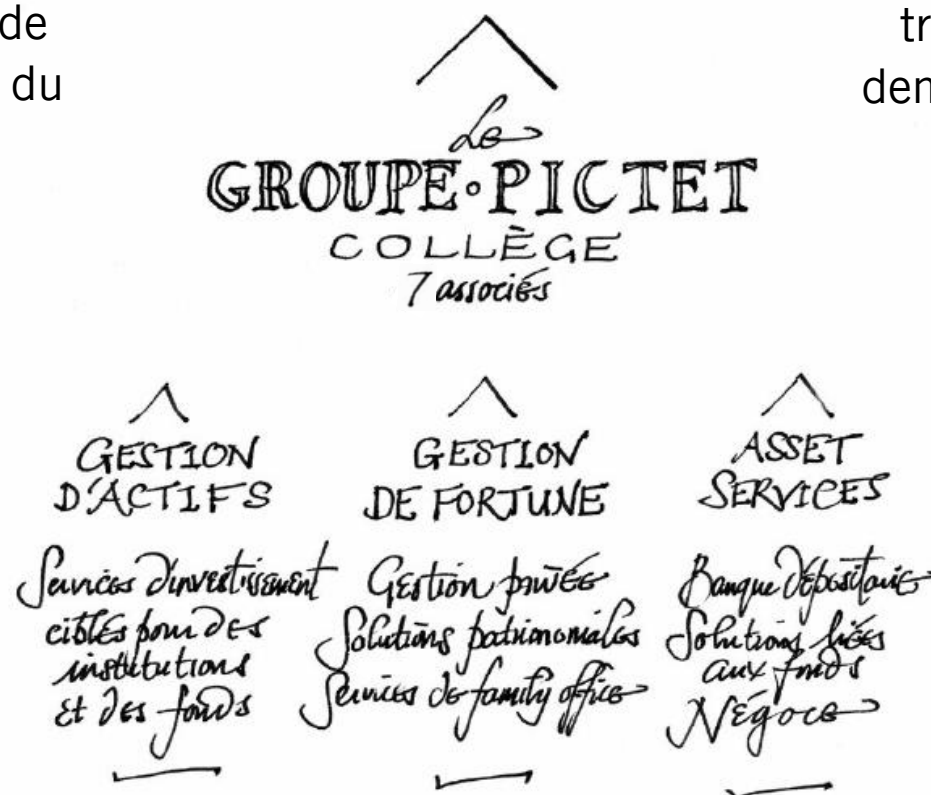 de
du
tr
den
Le
GROUPE • PICTET
COLLÈGE
7 associés
GESTION
D'ACTIFS
Services d'investissement
ciblés pour des
institutions
et des fonds
GESTION
DE FORTUNE
Gestion privée
Solutions patrimoniales
Services de family office
ASSET
SERVICES
Banque dépositaire
Solutions liées
aux fonds
Négoce